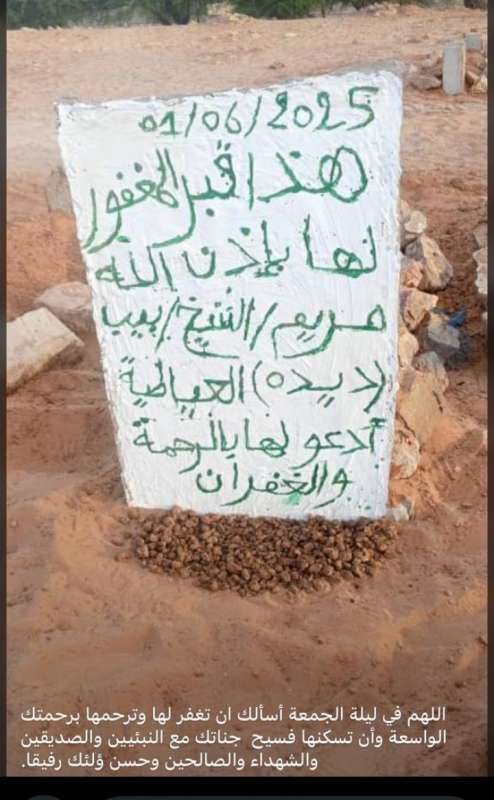 01/06/2025
هذا قبر المغفور
لها بإذن الله
مريم/الشيخ/بيب
(ديده) العياطية
أدعو لها بالرحمة
والغفران
اللهم في ليلة الجمعة أسألك ان تغفر لها وترحمها برحمتك
الواسعة وأن تسكنها فسيح جناتك مع النبئيين والصديقين
والشهداء والصالحين وحسن ؤلئك رفيقا.